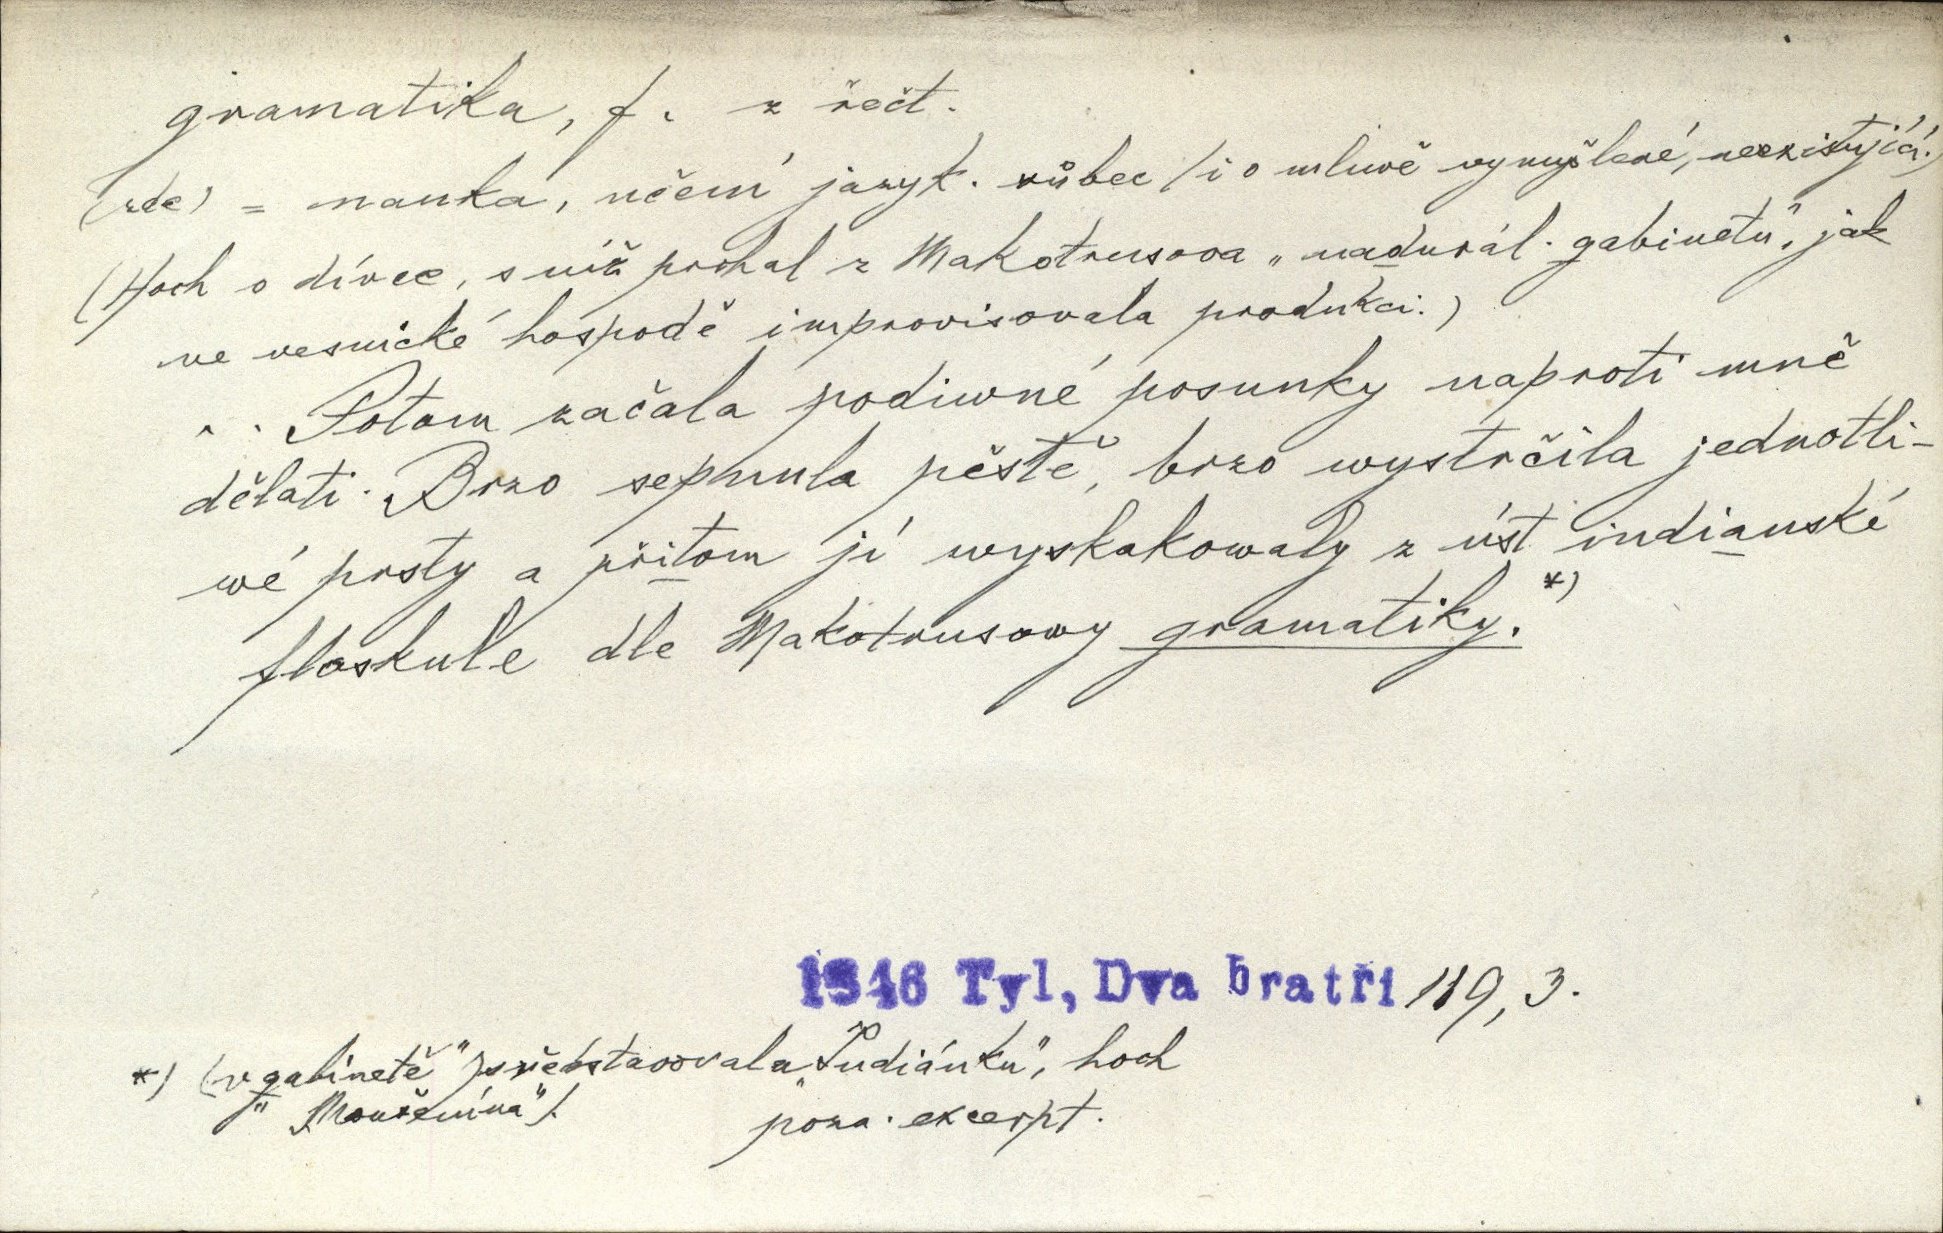 gramatika, f. z řečt.
(zde) = nauka, učení jazyk. vůbec (i o mluvě vymyšlené, neexistující.)
(Hoch o dívce, s níž prchal z Makotrusova „nadurál. gabinetu", jak
ve vesnické hospodě improvisovala produkci.)
.. Potom začala podiwné posunky naproti mně
dělati. Brzo sepnula pěstě, brzo wystrčila jednotli-
wé prsty a přitom jí wyskakowaly z úst indianské
floskule dle Makotrusowy gramatiky.*)
1846 Tyl, Dva bratři 119, 3.
*) (v „gabinetě" představovala „Indiánku", hoch
„Mouřenína").
pozn. excerpt.